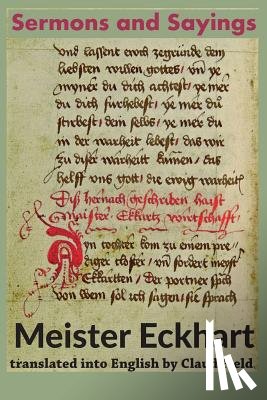 Sermons and Sayings
vnd lassent eroch zegründe dem
liebsten willen gottes / vn̄ ye
myner du dich achtest / ye mer du
du dich fürhebest / ye mer du
stirbest dem selbs / ye mer du
in der warheit lebest / das wir
zu diser warheitt kumen / das
helff vns gott / die ewig warheit
Diß hernach geschriben haist
maister Eckartz wirtschafft
tochter kom zu einem pre
diger closter / vn̄ fordert meyst
Eckartten / Der portner sprch
von wem sol ich sagen / sie sprach
Meister Eckhart
translated into English by Claud Field